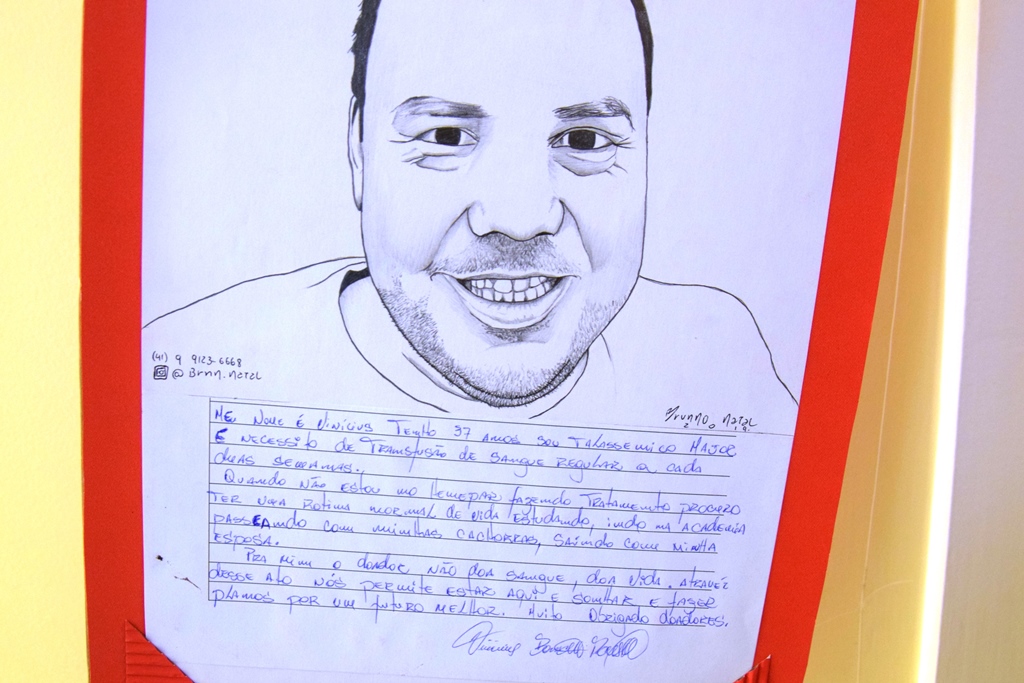 (41) 9 9123-6668
@Brnn.natal
Brunno Natal
19
ME NOME É VINÍCIUS TENHO 37 ANOS SOU TALASSEMICO MAJOR
E NECESSITO DE TRANSFUSÃO DE SANGUE REGULAR a cada
duas SEMANAS.
QUANDO NÃO ESTOU no HEMEPAR fazendo TRATAMENTO PROCURO
TER UMA ROTINA NORMAL DE VIDA ESTUDANDO, indo na ACADEMIA
PASSEANDO COM MINHAS CACHORRAS, SAINDO COM MINHA
ESPOSA.
PRA MIM O doador NÃO DOA SANGUE, DOA Vida. ATRAVÉZ
desse Ato NÓS PERMITE ESTAR AQUI E SONHAR E FASER
PLANOS POR UM futuro MELHOR. Muito OBRIGADO doadores.